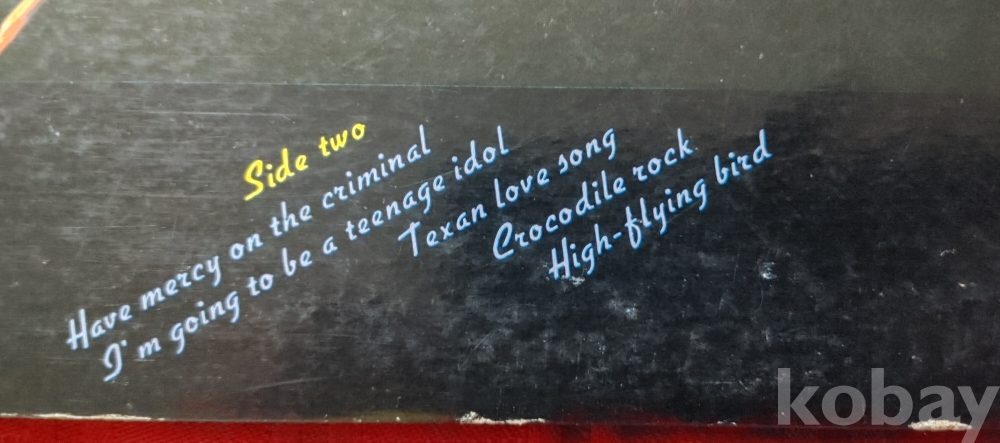 Side two
Have mercy on the criminal
I'm going to be a teenage idol
Texan love song
Crocodile rock
High-flying bird
kobay